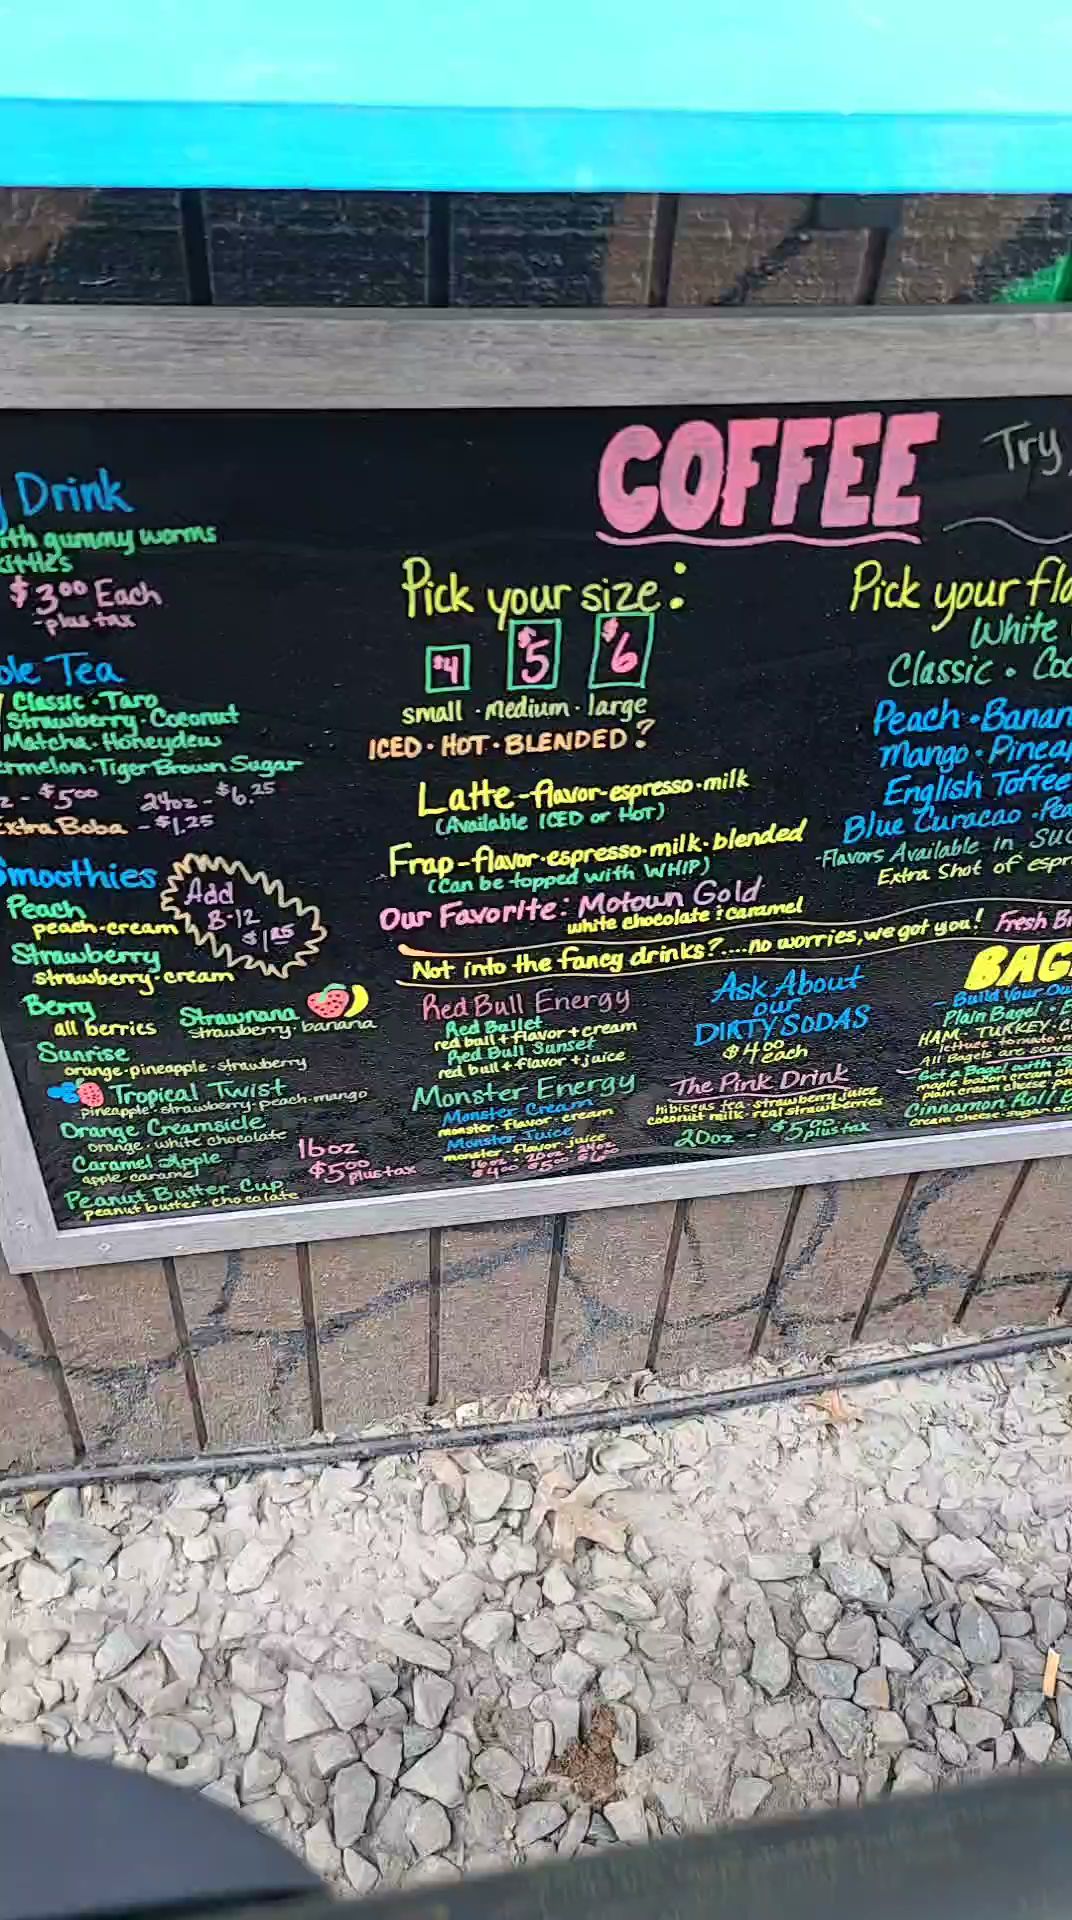 Drink
ith gummy worms
$3.00 Each
-plus tax
Tea
Classic · Taro
Strawberry · Coconut
Matcha · Honeydew
ermelon · Tiger Brown Sugar
z - $5.00 24oz - $6.25
Extra Boba - $1.25
Smoothies
Add
B-12
$1.25
Peach
peach · cream
Strawberry
strawberry · cream
Berry
all berries
Strawnana
strawberry · banana
Sunrise
orange · pineapple · strawberry
Tropical Twist
pineapple · strawberry · peach · mango
Orange Creamsicle
orange · white chocolate
Caramel Apple
apple · caramel
Peanut Butter Cup
peanut butter · chocolate
16oz
$5.00 plus tax
COFFEE
Try
Pick your size:
$4 $5 $6
small · medium · large
ICED · HOT · BLENDED?
Latte - flavor · espresso · milk
(Available ICED or HOT)
Frap - flavor · espresso · milk · blended
(Can be topped with WHIP)
Our Favorite: Motown Gold
white chocolate & caramel
Not into the fancy drinks?....no worries, we got you!
Red Bull Energy
Red Ballet
red bull + flavor + cream
Red Bull Sunset
red bull + flavor + juice
Monster Energy
Monster Cream
monster · flavor · cream
Monster Juice
monster · flavor · juice
16oz · 20oz · 24oz
$4.00 $5.00 $6.00
Ask About
our
DIRTY SODAS
$4.00 each
The Pink Drink
hibiscus tea · strawberry juice
coconut milk · real strawberries
20oz - $5 plus tax
Pick your fla
White
Classic ·
Peach · Banan
Mango · Pineap
English Toffee
Blue Curacao ·
-Flavors Available in
Extra Shot of espr
Fresh
BAG
- Build Your Ow
Plain Bagel ·
HAM · TURKEY ·
lettuce · tomato ·
All Bagels are serve
Get a Bagel with
maple bacon cream ch
plain cream cheese
Cinnamon Roll B
cream cheese · sugar